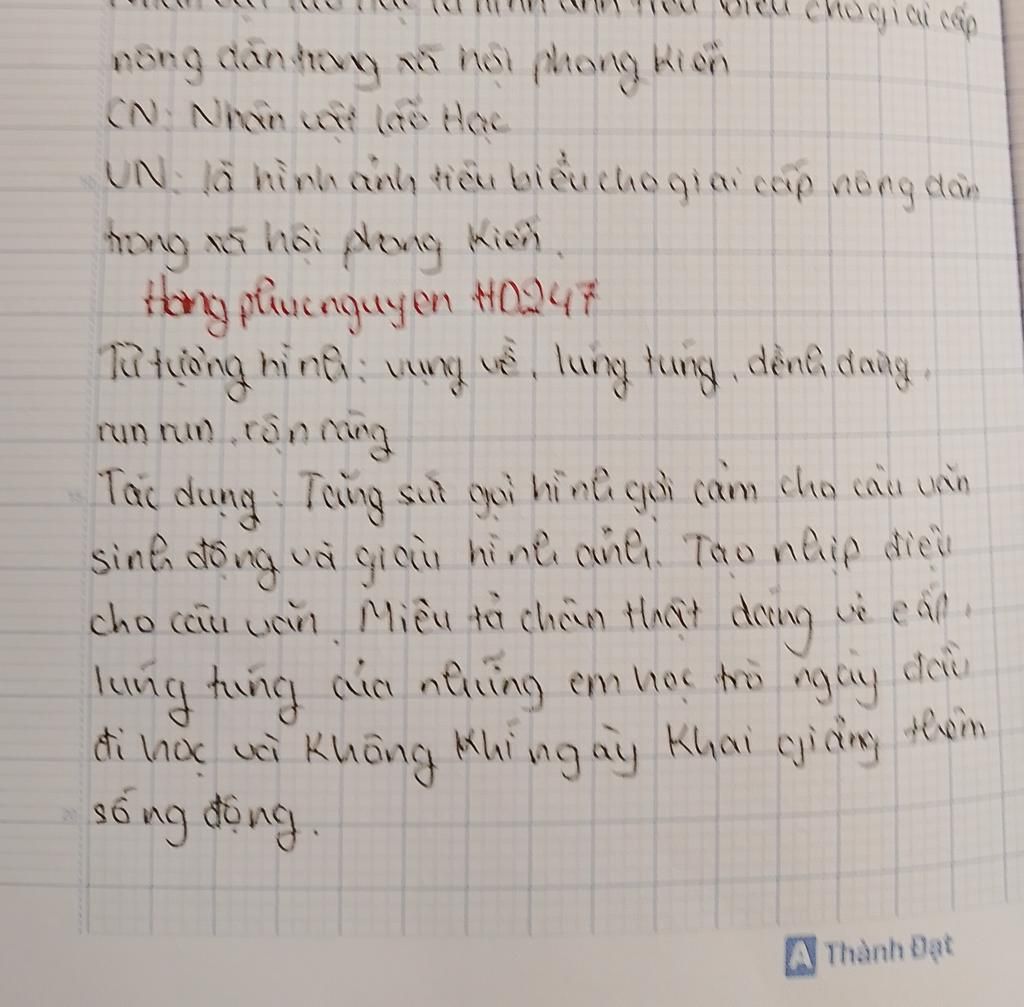 Nhân vật lão Hạc là hình ảnh tiêu biểu cho giai cấp
nông dân trong xã hội phong kiến
CN: Nhân vật lão Hạc
VN: là hình ảnh tiêu biểu cho giai cấp nông dân
trong xã hội phong kiến.
Hongphucnguyen H0247
Từ tượng hình: vụng về, lúng túng, dềnh dàng,
run run, rộn ràng
Tác dụng: Tăng sức gợi hình gợi cảm cho câu văn
sinh động và giàu hình ảnh. Tạo nhịp điệu
cho câu văn. Miêu tả chân thật dáng vẻ
lúng túng của những em học trò ngày đầu
đi học và không khí ngày khai giảng thêm
sống động.
A Thành Đạt